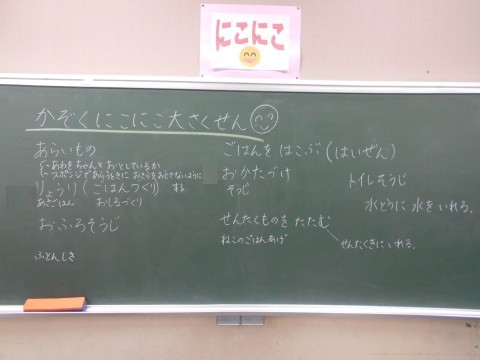 にこにこ
かぞくにこにこ大さくせん
あらいもの
あわをちゃんとおとしているか
スポンジであらうときにおさらをおとさないように
りょうり(ごはんづくり) する
あさごはん おしるづくり
おふろそうじ
ふとんしき
ごはんをはこぶ(はいぜん)
おかたづけ
そうじ
せんたくものをたたむ
ねこのごはんあげ
トイレそうじ
水とうに水をいれる。
せんたくきにいれる。